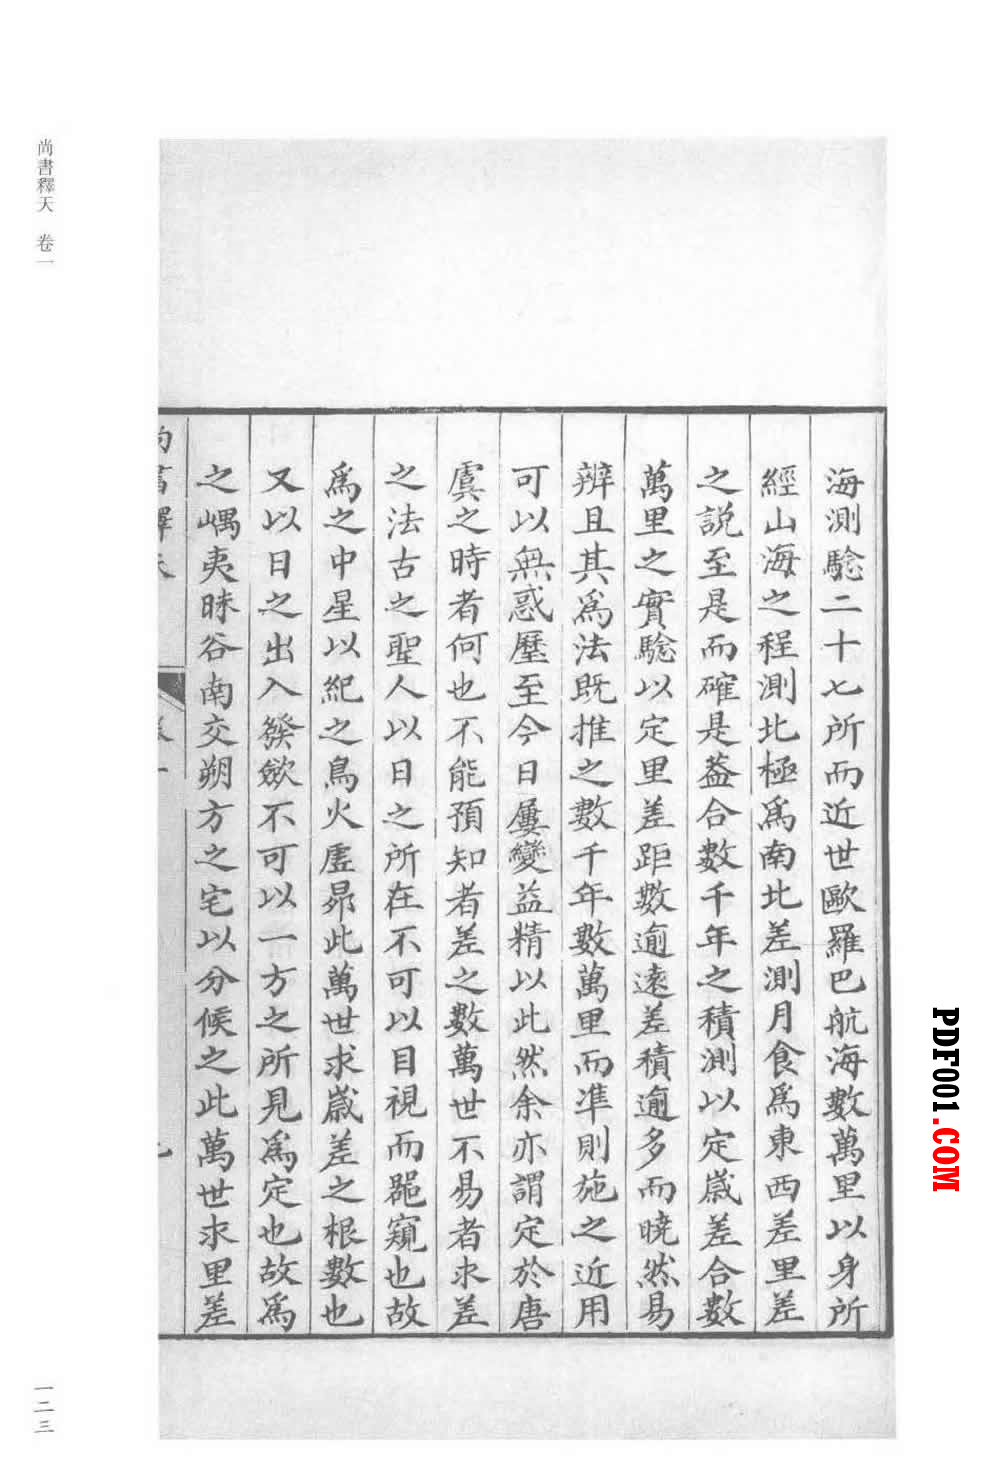 海測騐二十七所而近世歐羅巴航海數萬里以身所
經山海之程測北極爲南北差測月食爲東西差里差
之説至是而確是葢合數千年之積測以定歳差合數
萬里之實騐以定里差距數逾遠差積逾多而曉然易
辨且其爲法既推之數千年數萬里而準則施之近用
可以無惑歴至今日屢變益精以此然余亦謂定於唐
虞之時者何也不能預知者差之數萬世不易者求差
之法古之聖人以日之所在不可以目視而器窺也故
爲之中星以紀之鳥火虛昴此萬世求歳差之根數也
又以日之出入發斂不可以一方之所見爲定也故爲
之嵎夷昧谷南交朔方之宅以分候之此萬世求里差
尚書釋天
卷一
九
尚書釋天 卷一
一二三
PDF001.COM